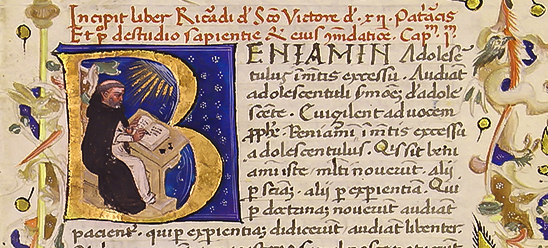 Incipit liber Ricardi d' Sco Victore d'. xii. Patriacis
Et p de studio sapientie & eius
BENIAMIN Adolesce
tulus i mtis excessu. Audiat
adolescentuli smoez d' adole
scente. ad uocem
pphe. Beniami i mtis excessu
adolescentulus. Qis sit beni
ami iste. mlti nouerut. alii.
p sciaz. alii p expientia. Qui
p doctrinaz nouerut audiat
pacient. qui p expientias didicerut audiat libenter.